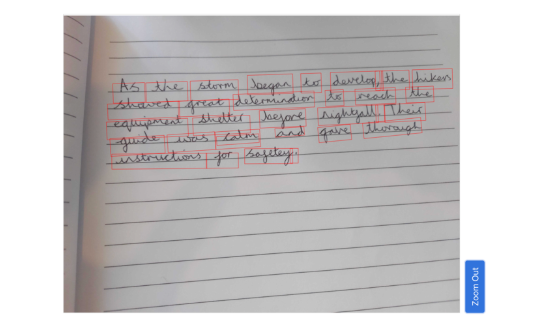 As the storm began to develop, the hikers
shaved great determindion to reach the
equipment shelter before nightfall. Their
guide was calm and gave thorough
instructions for safetey.
Zoom Out